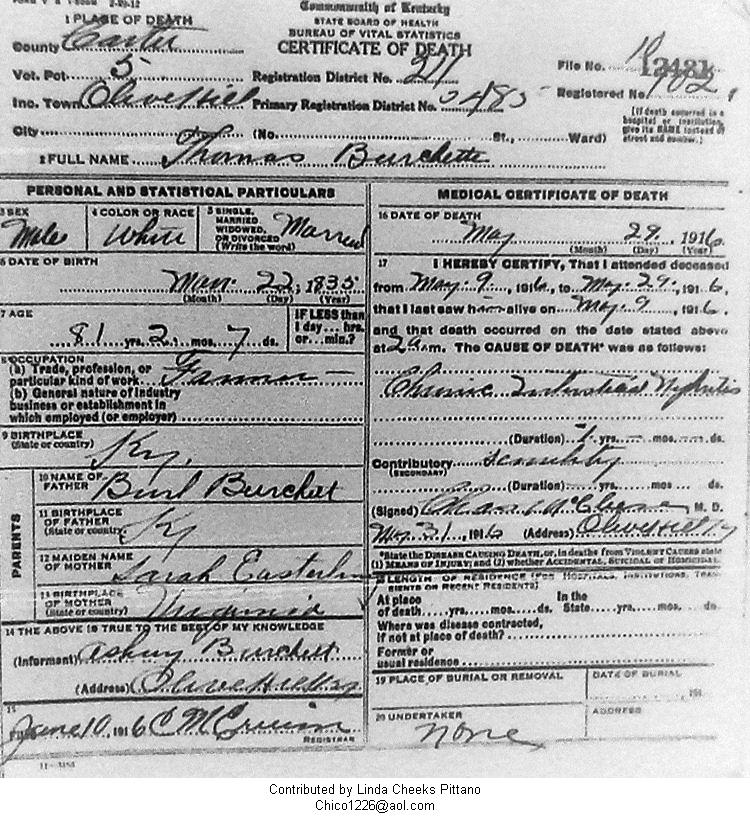 Commonwealth of Kentucky
STATE BOARD OF HEALTH
BUREAU OF VITAL STATISTICS
CERTIFICATE OF DEATH
1 PLACE OF DEATH
County Carter
Vot. Pct. 5
Registration District No. 211
File No. 12481
Inc. Town Olive Hill Primary Registration District No. 5485
Registered No.
[If death occurred in a hospital or institution, give its NAME instead of street and number.]
City (No. St., Ward)
2 FULL NAME Thomas Burchette
PERSONAL AND STATISTICAL PARTICULARS
3 SEX
Male
4 COLOR OR RACE
White
5 SINGLE, MARRIED, WIDOWED, OR DIVORCED (Write the word)
Married
6 DATE OF BIRTH
Mar. 22, 1835
(Month) (Day) (Year)
7 AGE
81 yrs. 2 mos. 7 ds.
IF LESS than 1 day... hrs. or... min.?
8 OCCUPATION
(a) Trade, profession, or particular kind of work Farmer
(b) General nature of industry business or establishment in which employed (or employer)
9 BIRTHPLACE
(State or country)
Ky.
PARENTS
10 NAME OF FATHER Burl Burchett
11 BIRTHPLACE OF FATHER (State or country) Ky
12 MAIDEN NAME OF MOTHER Sarah Easterling
13 BIRTHPLACE OF MOTHER (State or country) Virginia
14 THE ABOVE IS TRUE TO THE BEST OF MY KNOWLEDGE
(Informant) Asbury Burchett
(Address) Olive Hill Ky
15
June 10 1916
REGISTRAR
MEDICAL CERTIFICATE OF DEATH
16 DATE OF DEATH
May 29, 1916
(Month) (Day) (Year)
17 I HEREBY CERTIFY, That I attended deceased
from May 9, 1916, to May 29, 1916,
that I last saw him alive on May 9, 1916.
and that death occurred on the date stated above
at 2 a m. The CAUSE OF DEATH* was as follows:
Chronic Interstitial Nephritis
(Duration) 1 yrs. mos. ds.
Contributory senility
(SECONDARY)
(Duration) yrs. mos. ds.
(Signed) M. D.
May 31, 1916 (Address) Olive Hill Ky
*State the DISEASE CAUSING DEATH, or, in deaths from VIOLENT CAUSES state (1) MEANS OF INJURY; and (2) whether ACCIDENTAL, SUICIDAL OR HOMICIDAL.
18 LENGTH OF RESIDENCE (FOR HOSPITALS, INSTITUTIONS, TRANSIENTS OR RECENT RESIDENTS)
At place of death yrs. mos. ds. In the State yrs. mos. ds.
Where was disease contracted, if not at place of death?
Former or usual residence
19 PLACE OF BURIAL OR REMOVAL
DATE OF BURIAL
191
20 UNDERTAKER
none
ADDRESS
Contributed by Linda Cheeks Pittano
Chico1226@aol.com